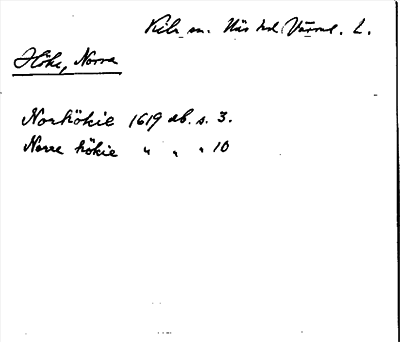 Kila sn. Näs hd. Värml. L.
Höke, Norra
Norhökie 1619 äb. s. 3.
Norre hökie " " " 10